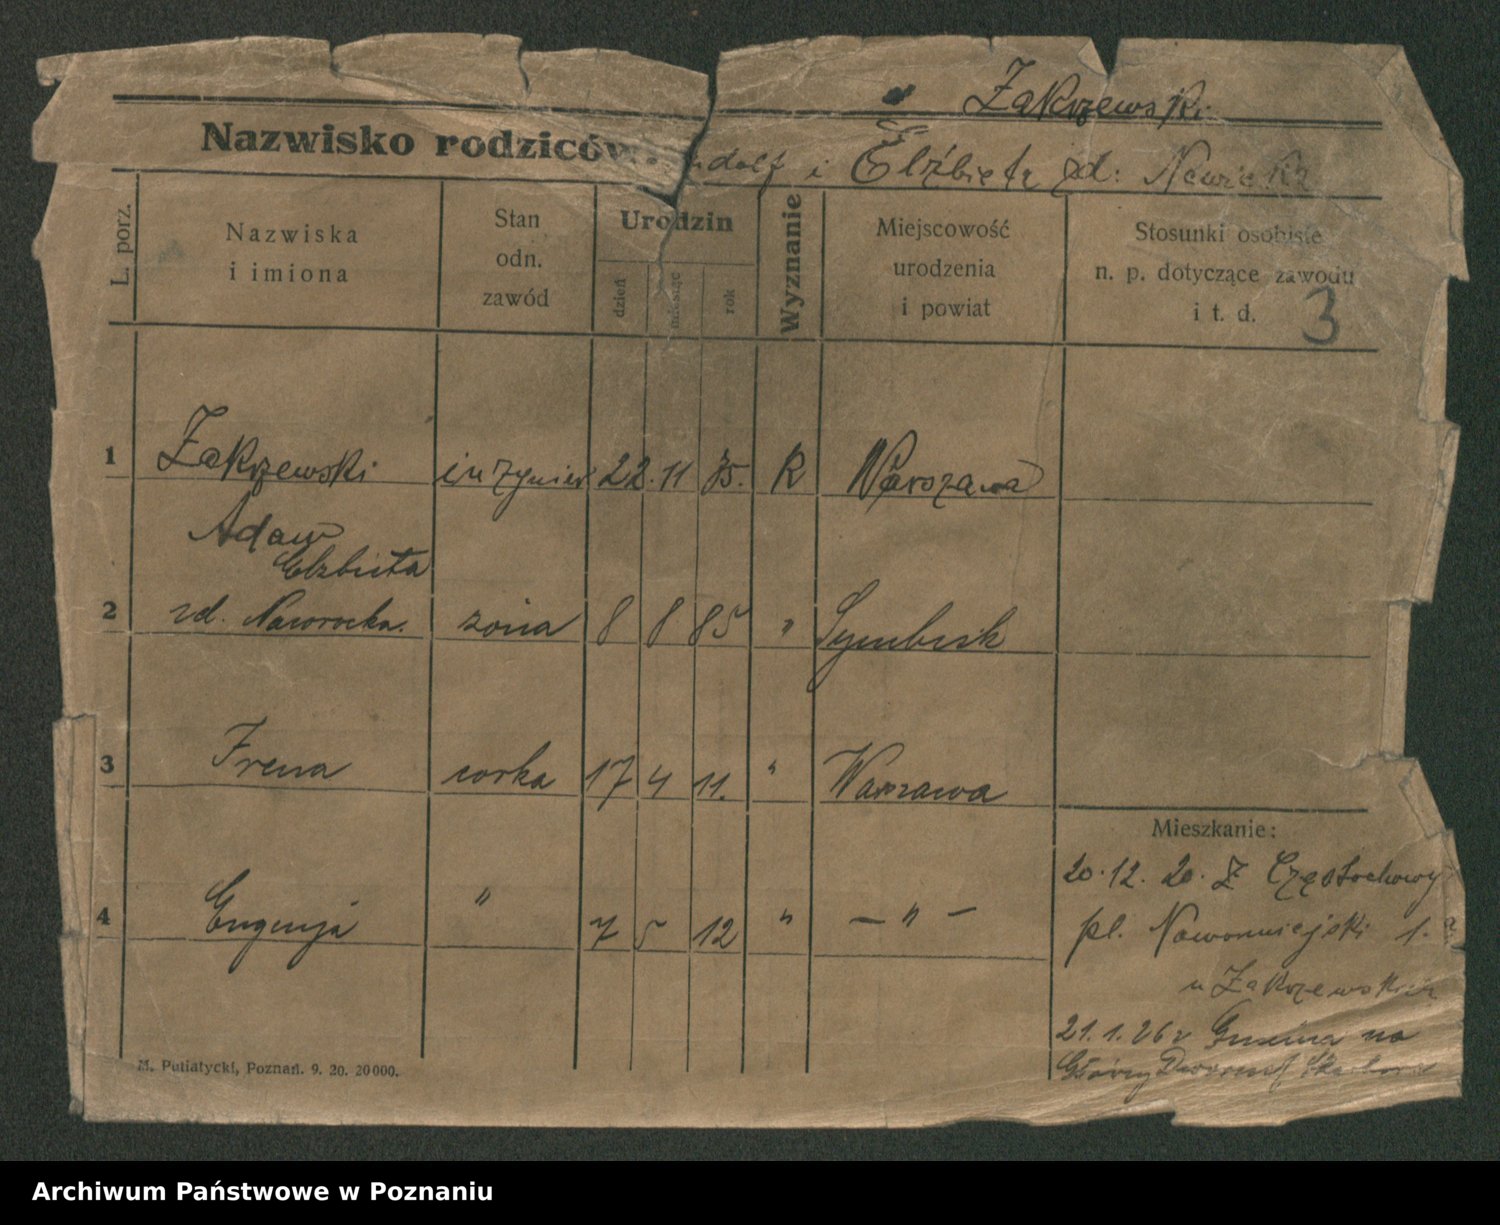 Zakrzewski
Nazwisko rodziców i Elżbieta zd:
L. porz.
Nazwiska
i imiona
Stan
odn.
zawód
Urodzin
dzień
miesiąc
rok
Wyznanie
Miejscowość
urodzenia
i powiat
Stosunki osobiste
n. p. dotyczące zawodu
i t. d.
3
1 Zakrzewski inżynier 22. 11 75. R Warszawa
Adam
Elzbieta
2 zd. Naworocka. żona 8 8 85 " Symbrik
3 Irena corka 17 4 11. " Warszawa
Mieszkanie:
20.12. 20. Z Częstochowy
4 Eugenja " 7 5 12 " — " —
pl. Nowomiejski 1.
u
21.1.26 r Gmina na
Główny Dworzec
M. Putiatycki, Poznań. 9. 20. 20000.
Archiwum Państwowe w Poznaniu